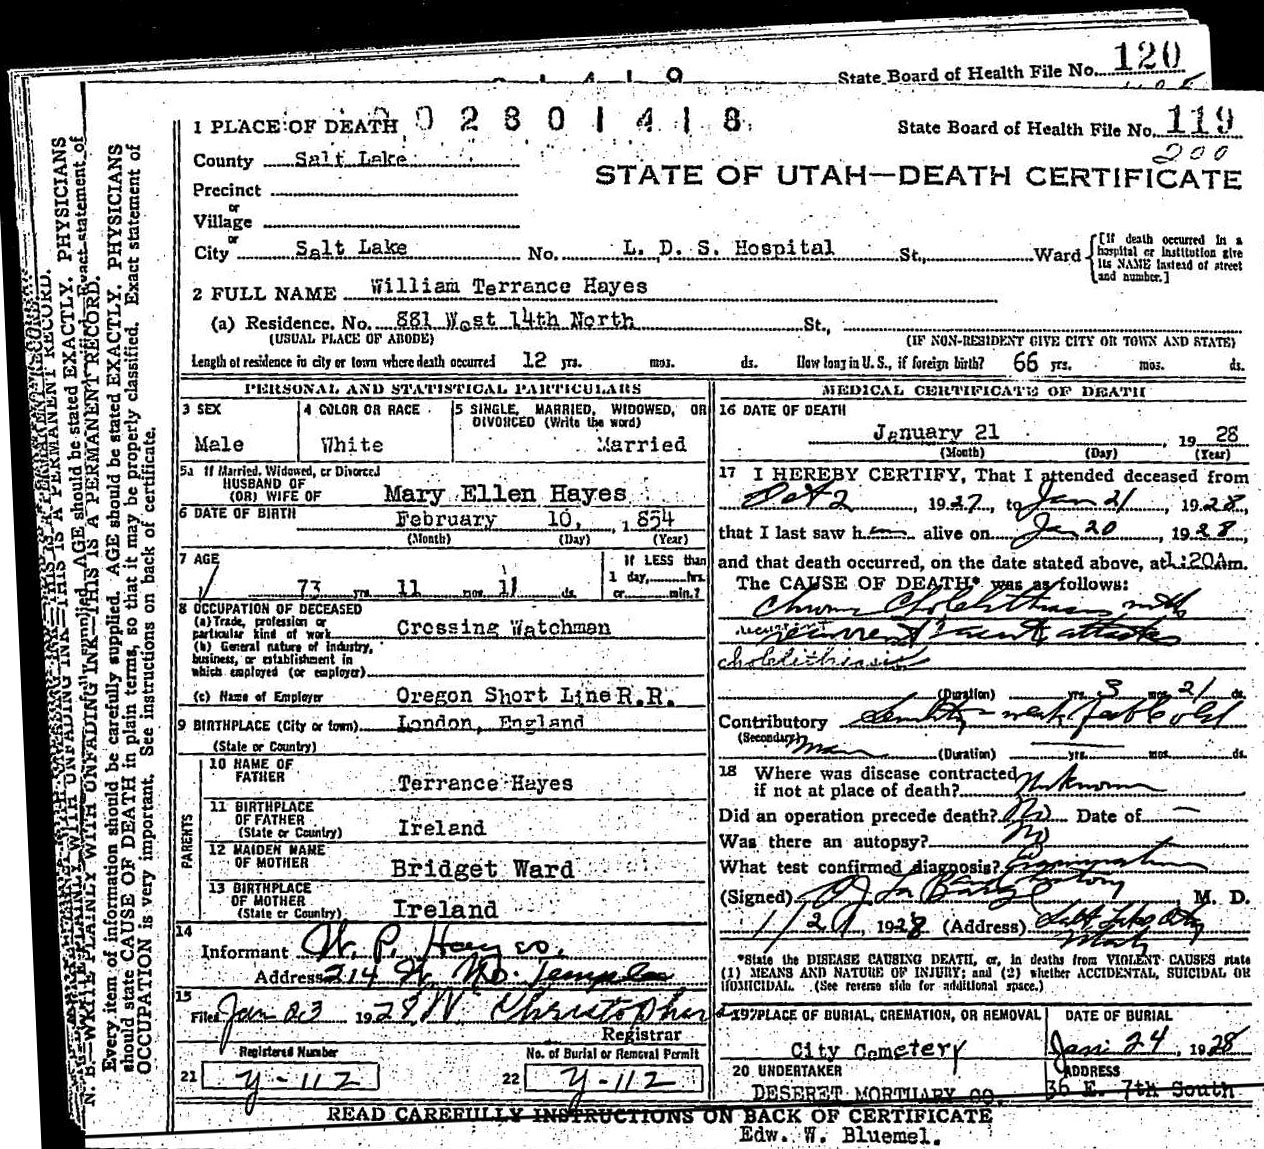 State Board of Health File No. 120
1 PLACE OF DEATH 02801418
State Board of Health File No. 119
200
County Salt Lake
STATE OF UTAH—DEATH CERTIFICATE
Precinct
or
Village
or
City Salt Lake No. L. D. S. Hospital St., Ward
[If death occurred in a hospital or institution give its NAME instead of street and number.]
2 FULL NAME William Terrance Hayes
(a) Residence. No. 881 West 14th North St.,
(USUAL PLACE OF ABODE) (IF NON-RESIDENT GIVE CITY OR TOWN AND STATE)
Length of residence in city or town where death occurred 12 yrs. mos. ds. How long in U. S., if foreign birth? 66 yrs. mos. ds.
PERSONAL AND STATISTICAL PARTICULARS
3 SEX
Male
4 COLOR OR RACE
White
5 SINGLE, MARRIED, WIDOWED, OR DIVORCED (Write the word)
Married
5a If Married, Widowed, or Divorced
HUSBAND OF
(OR) WIFE OF Mary Ellen Hayes
6 DATE OF BIRTH February 10, 1854
(Month) (Day) (Year)
7 AGE
73 yrs. 11 mos. 11 ds.
If LESS than
1 day, hrs.
or min.?
8 OCCUPATION OF DECEASED
(a) Trade, profession or
particular kind of work Crossing Watchman
(b) General nature of industry,
business, or establishment in
which employed (or employer)
(c) Name of Employer Oregon Short Line R.R.
9 BIRTHPLACE (City or town) London, England
(State or Country)
PARENTS
10 NAME OF
FATHER Terrance Hayes
11 BIRTHPLACE
OF FATHER
(State or Country) Ireland
12 MAIDEN NAME
OF MOTHER Bridget Ward
13 BIRTHPLACE
OF MOTHER
(State or Country) Ireland
14
Informant W. P. Hayes.
Address 214 W. No. Temple
15
Filed Jan 23 1928 W Christophers
Registrar
Registered Number
21 Y-112
No. of Burial or Removal Permit
22 Y-112
MEDICAL CERTIFICATE OF DEATH
16 DATE OF DEATH
January 21, 1928
(Month) (Day) (Year)
17 I HEREBY CERTIFY, That I attended deceased from
Oct 2, 1927, to Jan 21, 1928,
that I last saw h alive on Jan 20, 1928,
and that death occurred, on the date stated above, at 1:20Am.
The CAUSE OF DEATH* was as follows:
Chronic Cholelithiasis with
recurrent acute attacks
cholelithiasis
(Duration) yrs. 3 mos. 21 ds.
Contributory Senility - weak feeble old
(Secondary) man (Duration) yrs. mos. ds.
18 Where was disease contracted
if not at place of death? Unknown
Did an operation precede death? No Date of —
Was there an autopsy? No
What test confirmed diagnosis? Examination
history
(Signed) M. D.
1/21, 1928 (Address) Salt Lake City
Utah
*State the DISEASE CAUSING DEATH, or, in deaths from VIOLENT CAUSES state
(1) MEANS AND NATURE OF INJURY; and (2) whether ACCIDENTAL, SUICIDAL OR
HOMICIDAL. (See reverse side for additional space.)
19 PLACE OF BURIAL, CREMATION, OR REMOVAL
City Cemetery
DATE OF BURIAL
Jan 24, 1928
20 UNDERTAKER
DESERET MORTUARY CO.
ADDRESS
36 E. 7th South
READ CAREFULLY INSTRUCTIONS ON BACK OF CERTIFICATE
Edw. W. Bluemel.
N. B.—WRITE PLAINLY WITH UNFADING INK—THIS IS A PERMANENT RECORD.
Every item of information should be carefully supplied. AGE should be stated EXACTLY. PHYSICIANS
should state CAUSE OF DEATH in plain terms, so that it may be properly classified. Exact statement of
OCCUPATION is very important. See instructions on back of certificate.